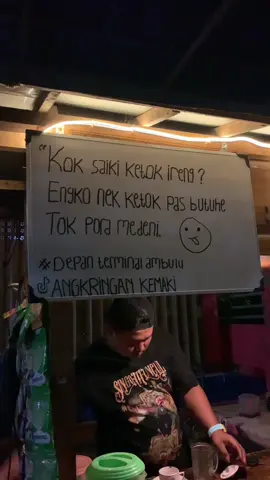 "Kok saiki ketok ireng?
Engko nek ketok pas butuhe
Tok pora medeni.
*Depan terminal ambulu
ANGKRINGAN KEMAKI